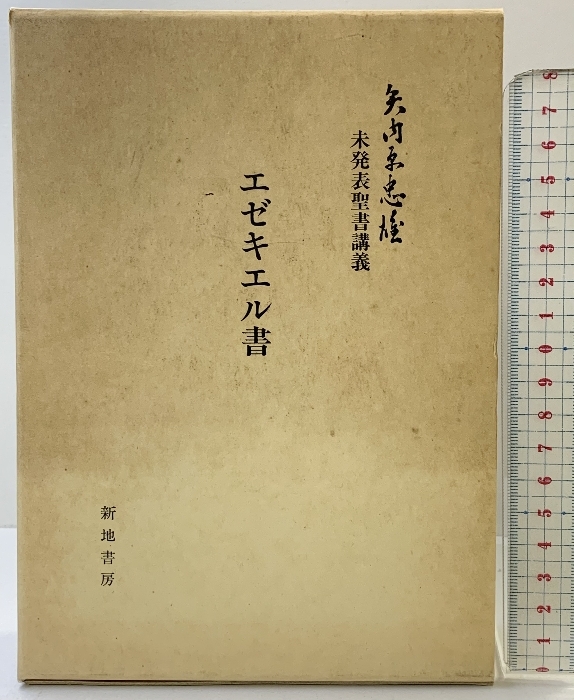 矢内原忠雄
未発表聖書講義
エゼキエル書
新地書房
8
7
6
5
4
3
2
1
0
9
8
7
6
5
4
3
2
1